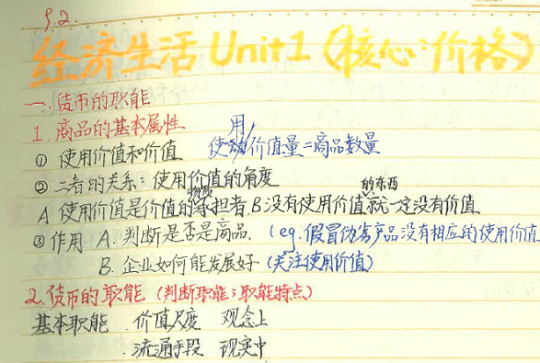 9.2.
经济生活 Unit1 (核心:价格)
一.货币的职能
1.商品的基本属性
① 使用价值和价值 使用价值量=商品数量
② 二者的关系:使用价值的角度
A 使用价值是价值的物质承担者 B.没有使用价值的东西就一定没有价值
③ 作用 A.判断是否是商品 (eg.假冒伪劣产品没有相应的使用价值
B.企业如何能发展好 (关注使用价值)
2.货币的职能 (判断职能;职能特点)
基本职能 .价值尺度 观念上
.流通手段 现实中